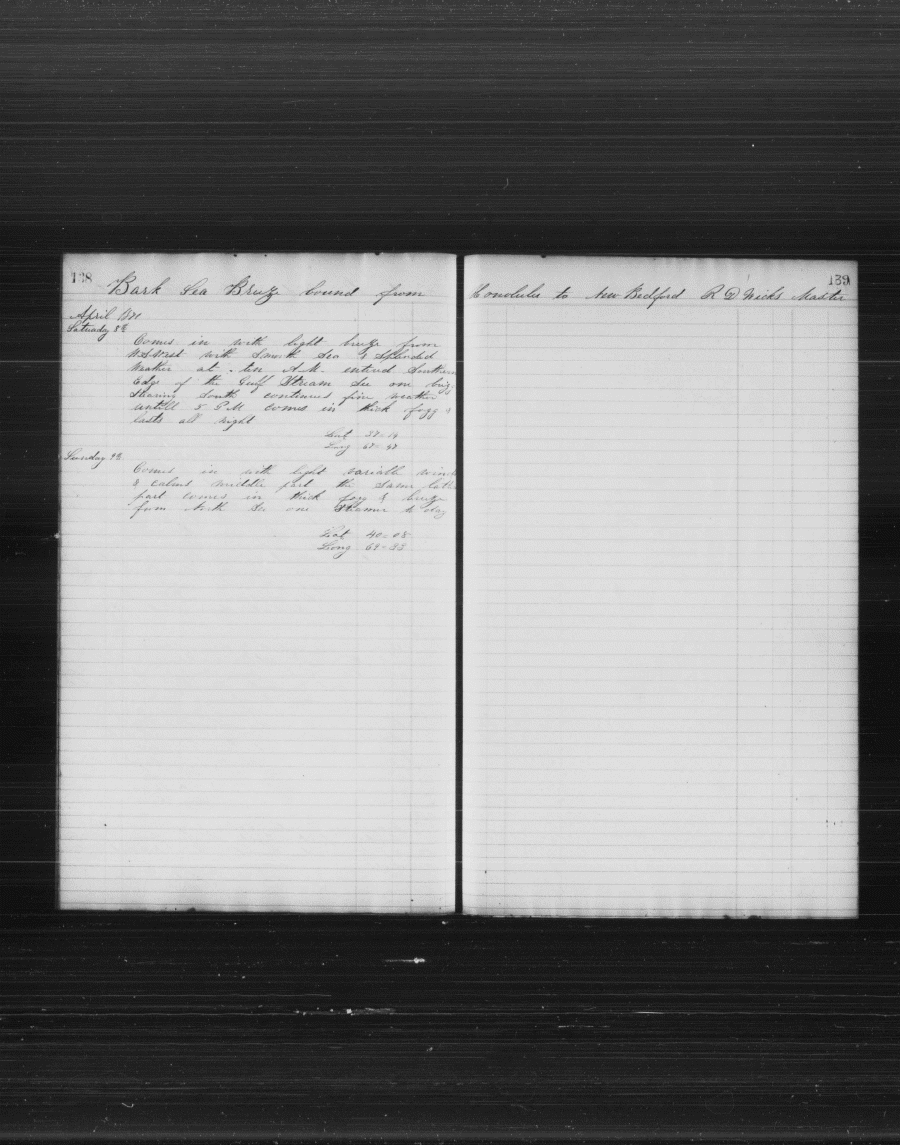 138
Bark Sea Breeze bound from
April
Saturday 8th
Comes in with light breeze from
W.S.West with Smooth Sea & Splended
Weather at Ten A.M. entered Southern
Edge of the Gulf Stream See one brig
Stearing South continues fine weather
untill 5 P M comes in thick fogg &
lasts all Night
Lat 37=14
Long 67=
Sunday 9th
Comes in with light variable winds
& calms middle part the Same latter
part comes in thick fog & breeze
from North See one Steamer to day
Lat 40=08
Long 69=33
139
Honolulu to New Bedford R D Wicks Master